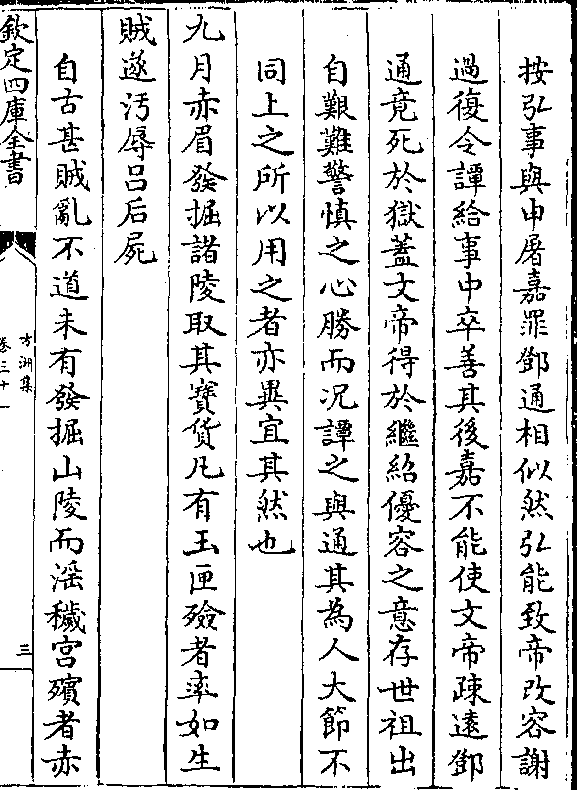 按弘事與申屠嘉罪鄧通相似然弘能致帝改容謝
過復令譚給事中卒善其後嘉不能使文帝疎遠鄧
通竟死於獄蓋文帝得於繼紹優容之意存世祖出
自艱難警慎之心勝而况譚之與通其為人大節不
同上之所以用之者亦異宜其然也
九月赤眉發掘諸陵取其寶貨凡有玉匣殮者率如生
賊遂汚辱吕后屍
自古甚賊亂不道未有發掘山陵而淫穢宫殯者赤
欽定四庫全書
方洲集
卷三十
三